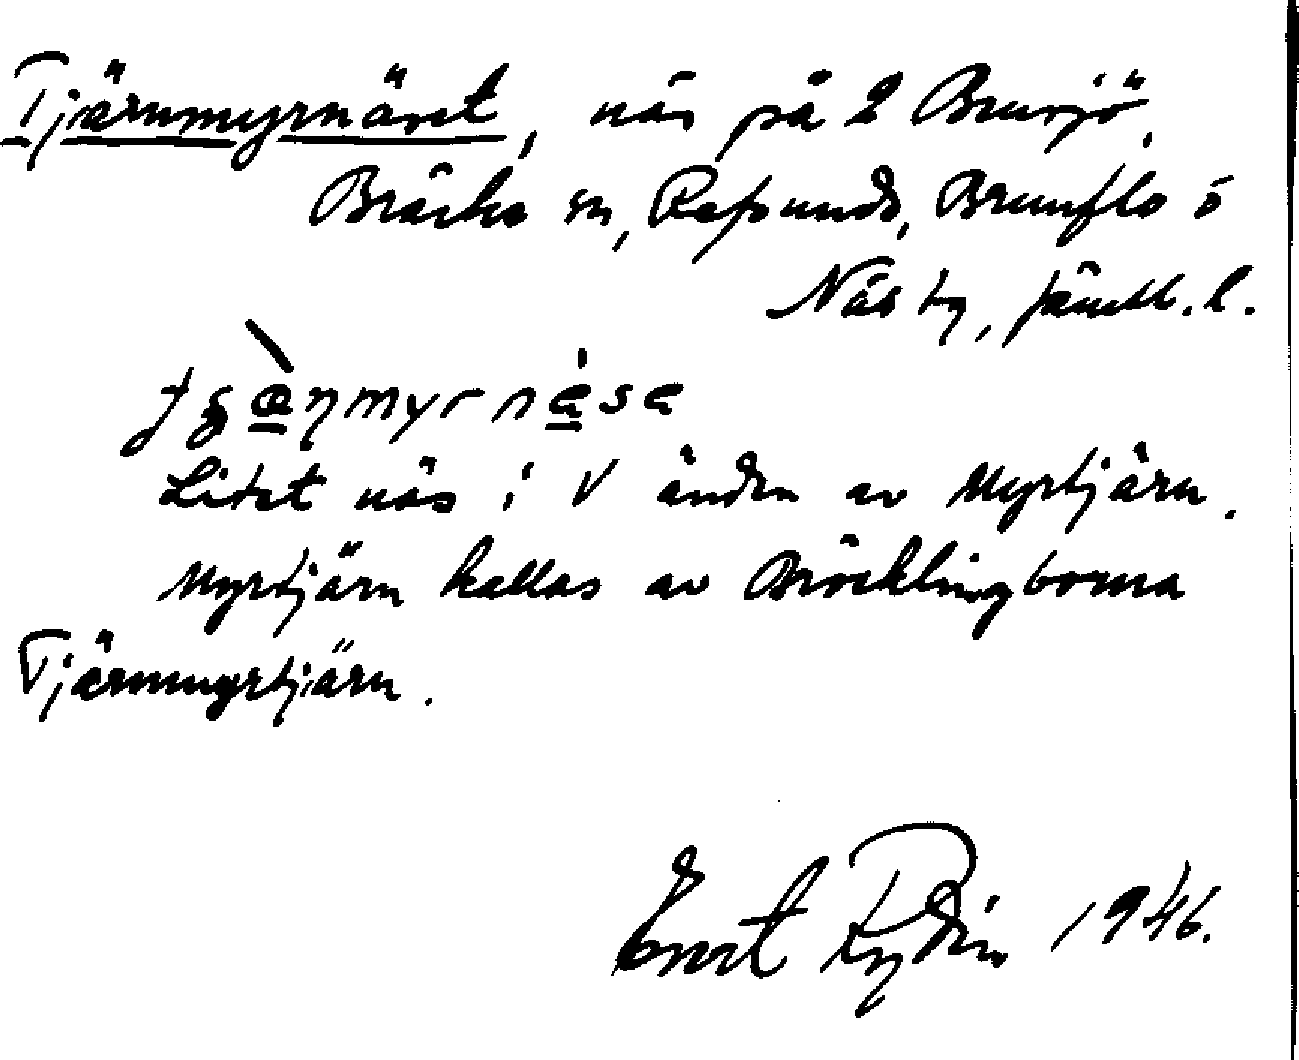 Tjärnmyrnäset, näs på 2 Bensjö,
Bräcke sn, Refsunds, Brunflo o
Näs tg, Jämtl. l.
Litet näs i V änden av Myrtjärn.
Myrtjärn kallas av Bröcklingborna
Tjärnmyrtjärn.
Evert Rydin 1946.